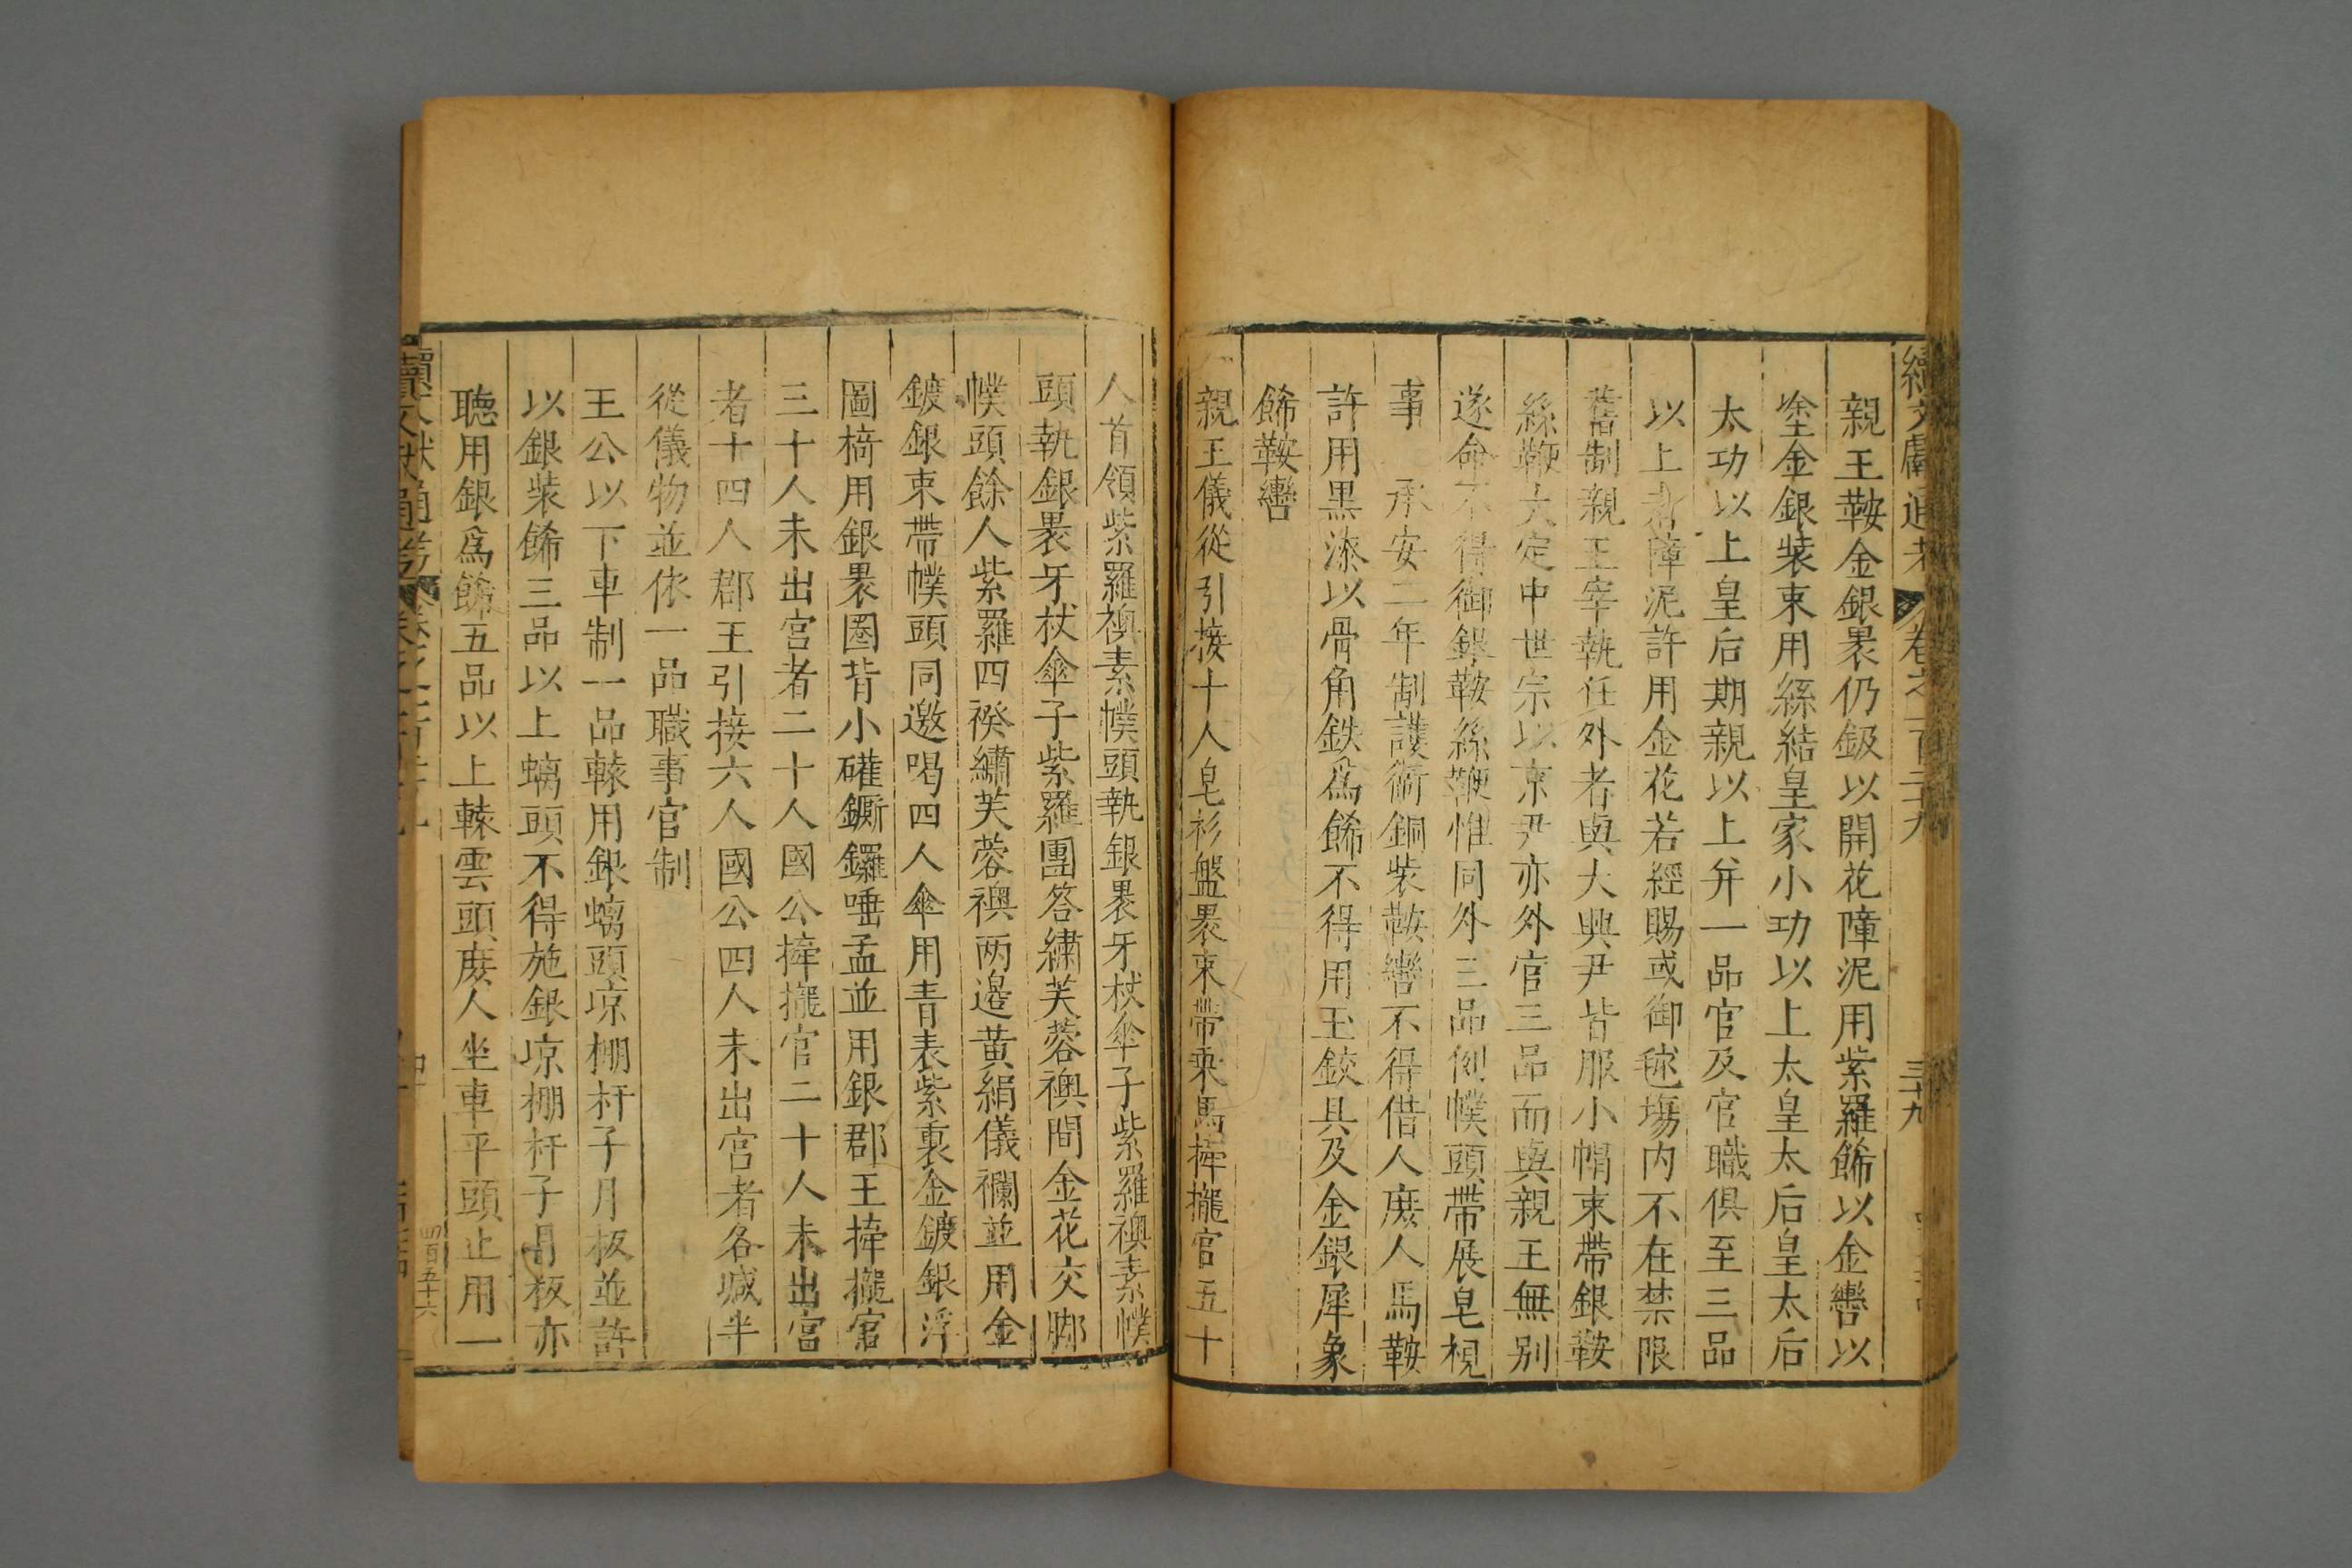 續文獻通考 卷之一百二十九 三十九
親王鞍金銀裹仍鈒以開花障泥用紫羅餙以金轡以
塗金銀裝束用絲結皇家小功以上太皇太后皇太后
太功以上皇后期親以上并一品官及官職俱至三品
以上者障泥許用金花若經賜或御毬塲内不在禁限
舊制親王宰執任外者與大興尹皆服小帽束帶銀鞍
絲鞭大定中世宗以京尹亦外官三品而與親王無别
遂命不得御銀鞍絲鞭惟同外三品例幞頭帶展皂視
事 承安二年制護衛銅裝鞍轡不得借人庶人馬鞍
許用黒漆以骨角鉄爲餙不得用玉鉸具及金銀犀象
餙鞍轡
親王儀從引接十人皂衫盤裹束帶乘馬捧攏官五十
人首領紫羅襖素幞頭執銀裹牙杖傘子紫羅襖素幞
頭執銀裹牙杖傘子紫羅團荅繡芙蓉襖間金花交脚
幞頭餘人紫羅四䙆繡芙蓉襖两邉黄絹儀襴並用金
鍍銀束帶幞頭同邀喝四人傘用青表紫裏金鍍銀浮
圖椅用銀裹圏背小㩁鐁鑼唾盂並用銀郡王捧攏官
三十人未出宫者二十人國公捧攏官二十人未出宫
者十四人郡王引接六人國公四人未出宫者各减半
從儀物並依一品職事官制
王公以下車制一品轅用銀螭頭凉棚杆子月板並許
以銀裝餙三品以上螭頭不得施銀凉棚杆子月板亦
聽用銀爲餙五品以上轅雲頭庶人坐車平頭止用一
續文獻通考 四十
四百五十六